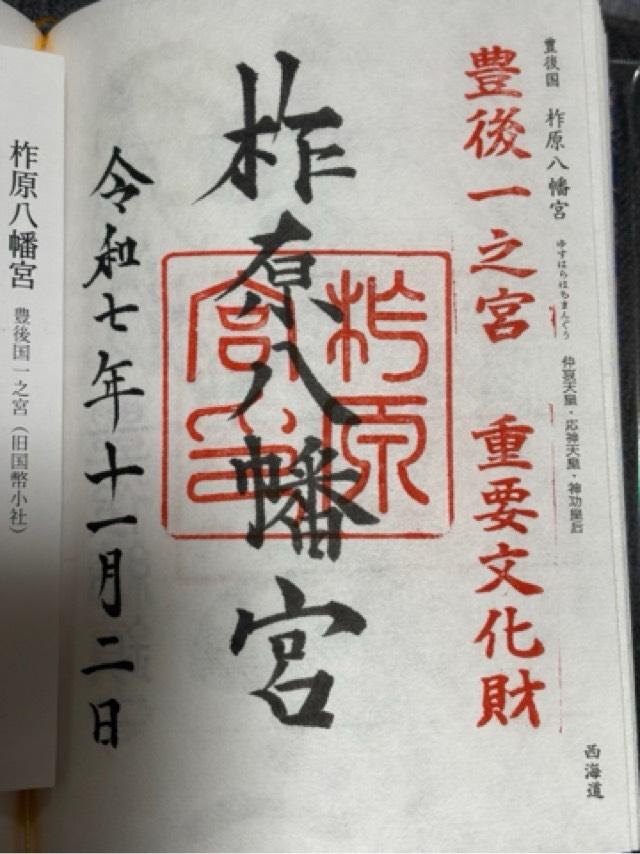 豊後国 柞原八幡宮 ゆすはらはちまんぐう 仲哀天皇・応神天皇・神功皇后
西海道
豊後一之宮 重要文化財
柞原八幡宮
柞原
宮印
令和七年十一月二日
柞原八幡宮 豊後国一之宮（旧国幣小社）